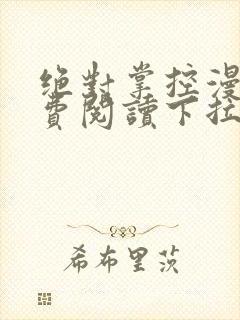 绝對掌控漫
費閱讀下拉
希布里茨